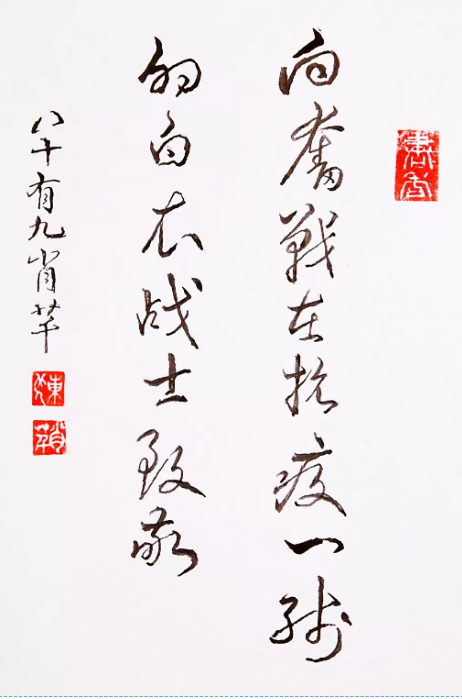 向奮戰在抗疫一线
的白衣战士致敬
八十有九肖芊